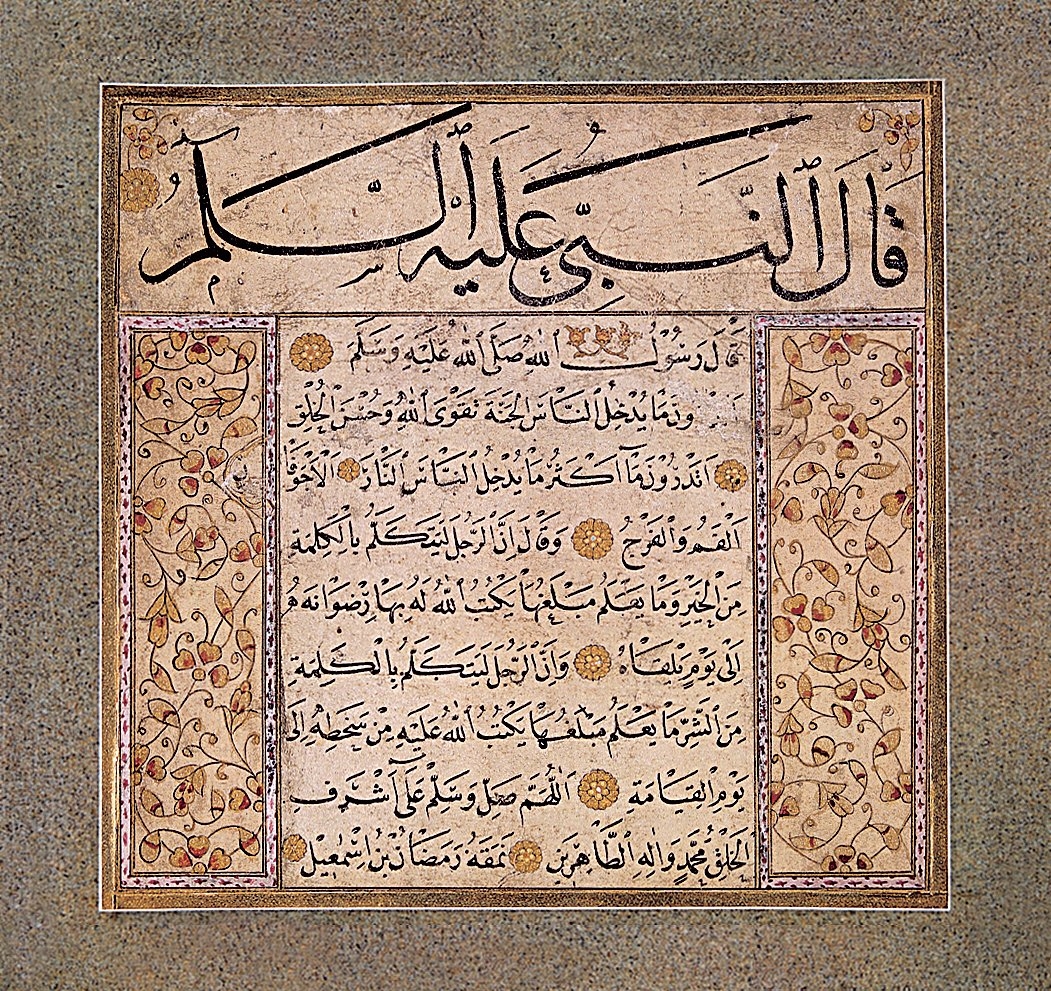 قَالَ النَّبِيُّ عَلَيْهِ السَّلَم
قَالَ رَسُولُ اللهِ صَلَّى اللهُ عَلَيْهِ وَسَلَّمَ
مَا يُدْخِلُ النَّاسَ الجَنَّةَ تَقْوَى اللهِ وَحُسْنَ الخُلْقِ
اَتَدْرُونَ مَا اَكْثَرُ مَا يُدْخِلُ النَّاسَ النَّارَ الْاَجْوَفَا
اَلْفَمُ وَالْفَرْجُ وَقَالَ اِنَّ الرَّجُلَ لَيَتَكَلَّمُ بِالْكَلِمَةِ
مِنَ الْخَيْرِ وَمَا يَعْلَمُ مَبْلَغَهَا يَكْتُبُ اللهُ لَهُ بِهَا رِضْوَانَهُ
اِلَى يَوْمِ يَلْقَاهُ وَاِنَّ الرَّجُلَ لَيَتَكَلَّمُ بِالْكَلِمَةِ
مِنَ الشَّرِّ مَا يَعْلَمُ مَبْلَغَهَا يَكْتُبُ اللهُ عَلَيْهِ مِنْ سَخَطِهِ اِلَى
يَوْمِ الْقِيَامَةِ اَللّٰهُمَّ صَلِّ وَسَلِّمْ عَلَى اَشْرَفِ
الْخَلْقِ مُحَمَّدٍ وَاٰلِهِ الطَّاهِرِينَ نَمَقَهُ رَمَضَانُ بْنُ اِسْمٰعِيلَ